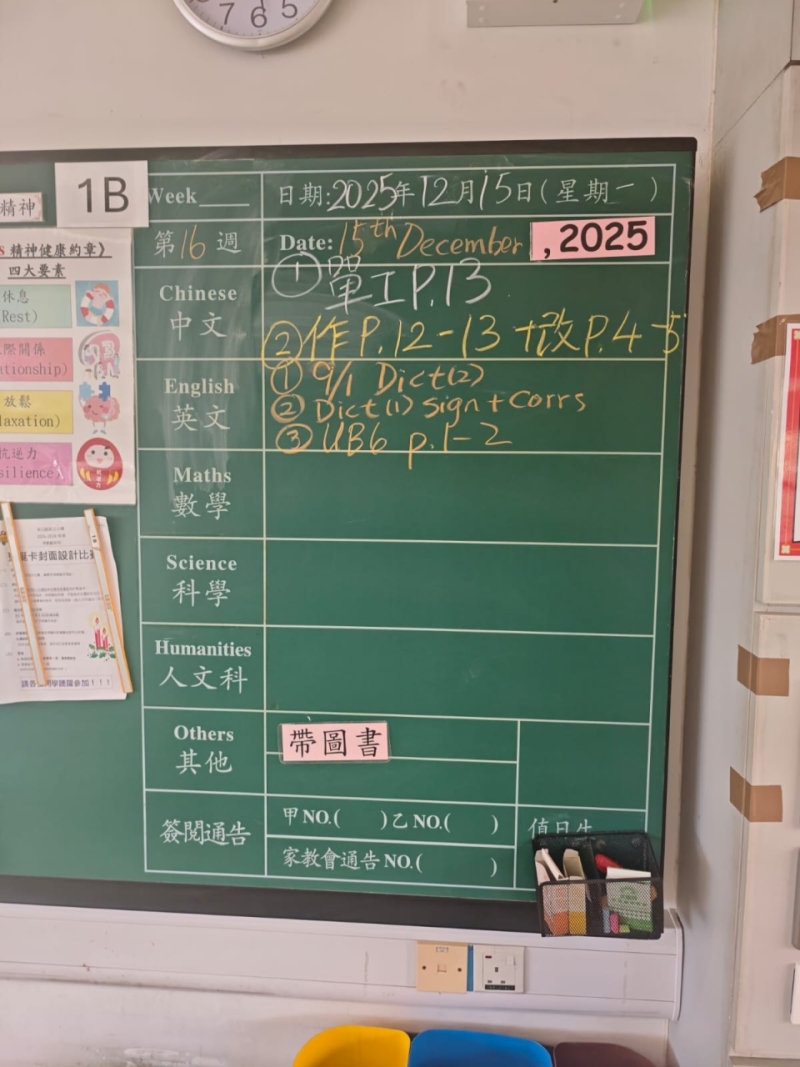 7 6 5
精神
1B
Week
日期:2025年12月15日(星期一)
第16週
Date: 15th December, 2025
精神健康約章》
四大要素
休息
(Rest)
際關係
tionship)
放鬆
axation)
抗逆力
silience)
Chinese
中文
① 單工P.13
② 作P.12-13+改P.4-5
English
英文
① 9/1 Dict(2)
② Dict(1) sign+corrs
③ UB6 p.1-2
Maths
數學
Science
科學
卡封面設計比
Humanities
人文科
Others
其他
帶圖書
簽閱通告
甲NO.( )乙NO.( )
家教會通告NO.( )
值日生